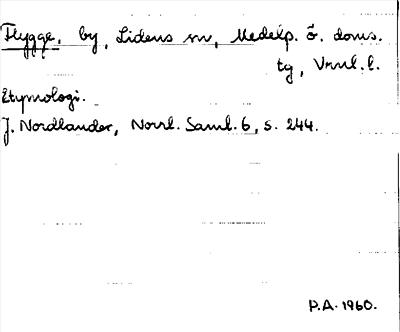 Flygge, by, Lidens sn, Medelp. ö. doms.
tg, Vnrl. l.
Etymologi.
J. Nordlander, Norrl. Saml. 6, s. 244.
P.A. 1960.